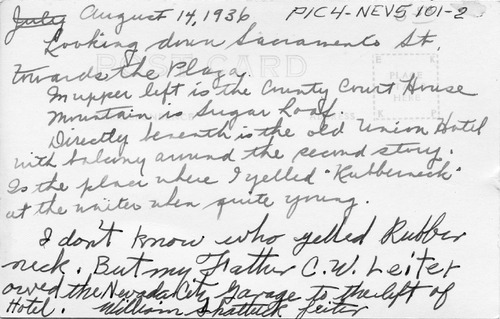 July August 14, 1936 PIC4-NEV5 101-2
Looking down Sacramento St.
towards the Plaza.
In upper left is the County Court House
Mountain is Sugar Loaf.
Directly beneath is the old Union Hotel
with balcony around the second story.
Is the place where I yelled "Rubberneck"
at the waiter when quite young.
I don't know who yelled Rubber
neck. But my Father C. W. Leiter
owed the Nevada City Garage to the left of
Hotel. William Shattuck Leiter
POST CARD
PLACE
HERE